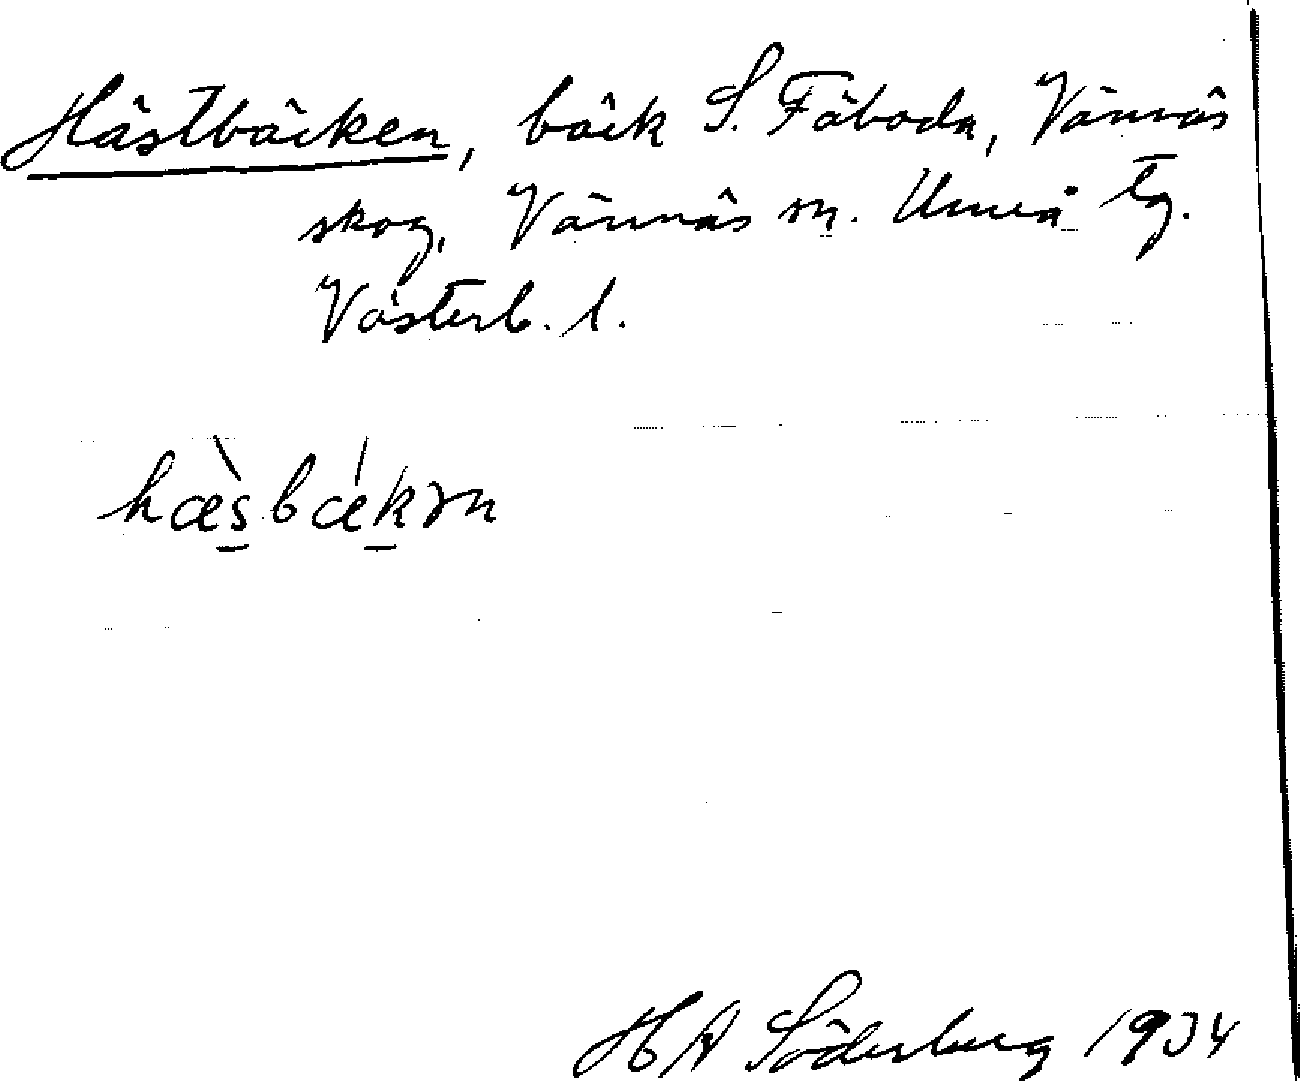 Hästbäcken, bäck S. Fäboda, Vännäs
skog, Vännäs sn. Umeå tg.
Västerb. l.
hæ̀sbǽkən
H A Söderberg 1934